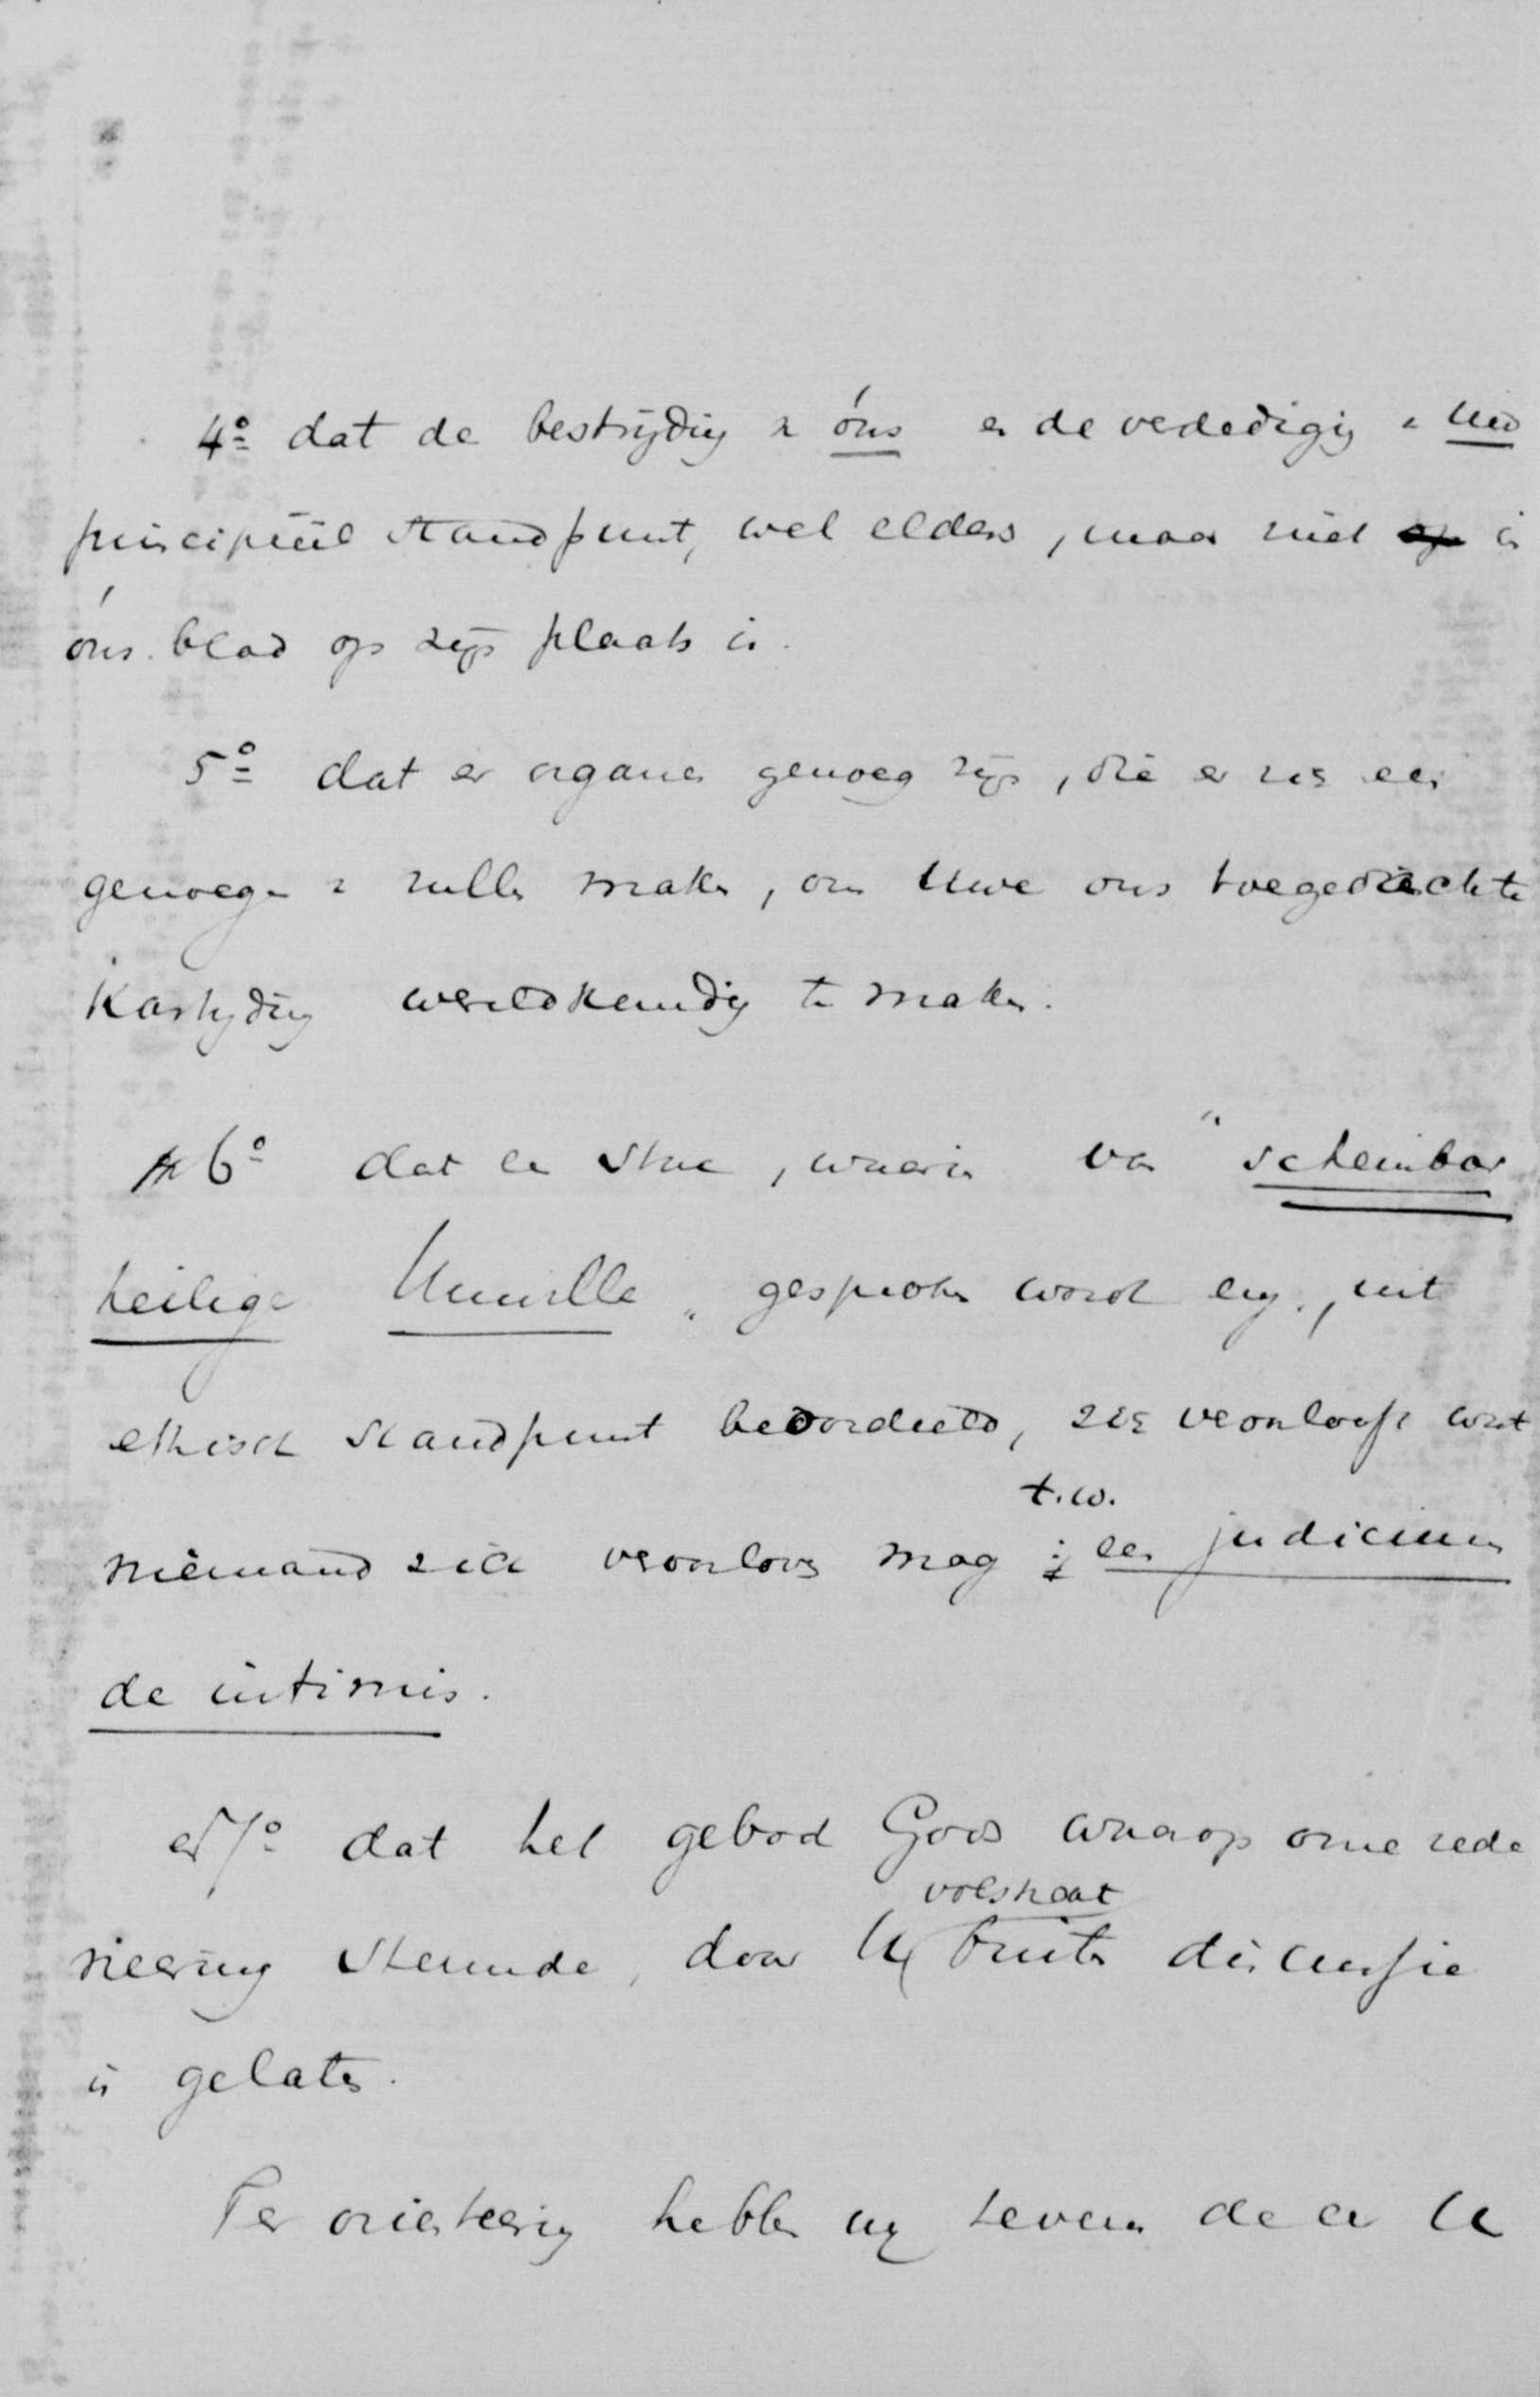 4º dat de bestrijding v óns en de verdediging v Uw
principiëel standpunt, wel elders, maar niet op in
óns blad op zijn plaats is.
5º dat er organen genoeg zijn, die er zich een
genoegen v zullen maken, om Uwe ons toegedachte
Kastijding wereldkundig te maken.
6º dat een stuk, waarin van "scheinbar
heilige Unwille" gesproken wordt enz., uit
ethisch standpunt beoordeeld, zich veroorlooft wat
niemand zich veroorloven mag t.w. een judicium
de intimis.
en 7º dat het gebod Gods waarop onze rede
neering steunde, door U volstrekt buiten discussie
is gelaten.
Ter orienteering hebben wij tevens de er U